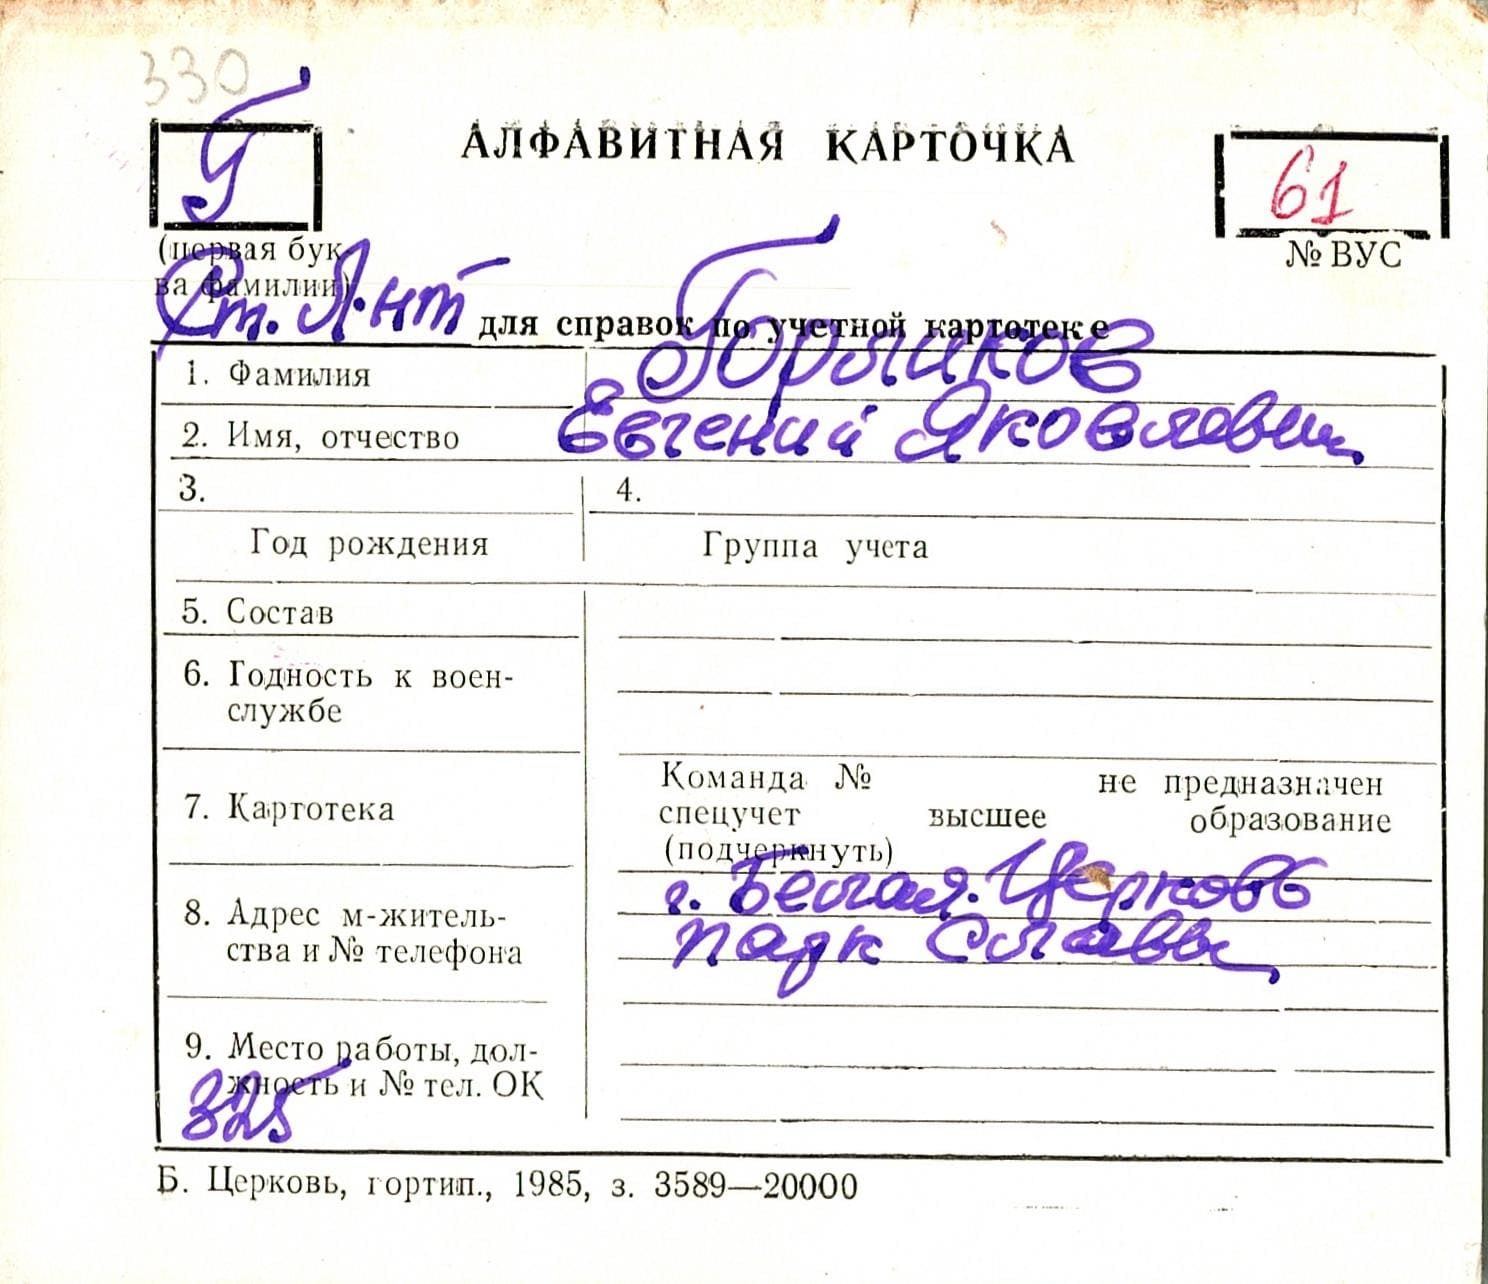 330
Г
АЛФАВИТНАЯ КАРТОЧКА
61
(первая бук-
ва фамилии)
№ ВУС
Ст. Л-нт
для справок по учетной картотеке
1. Фамилия Горликов
2. Имя, отчество Евгений Яковлевич
3. 4.
Год рождения Группа учета
5. Состав
6. Годность к воен-
службе
7. Картотека
Команда № не предназначен
спецучет высшее образование
(подчеркнуть)
8. Адрес м-житель-
ства и № телефона
г. Белая Церковь
парк Славы
9. Место работы, дол-
жность и № тел. ОК
325
Б. Церковь, гортип., 1985, з. 3589—20000